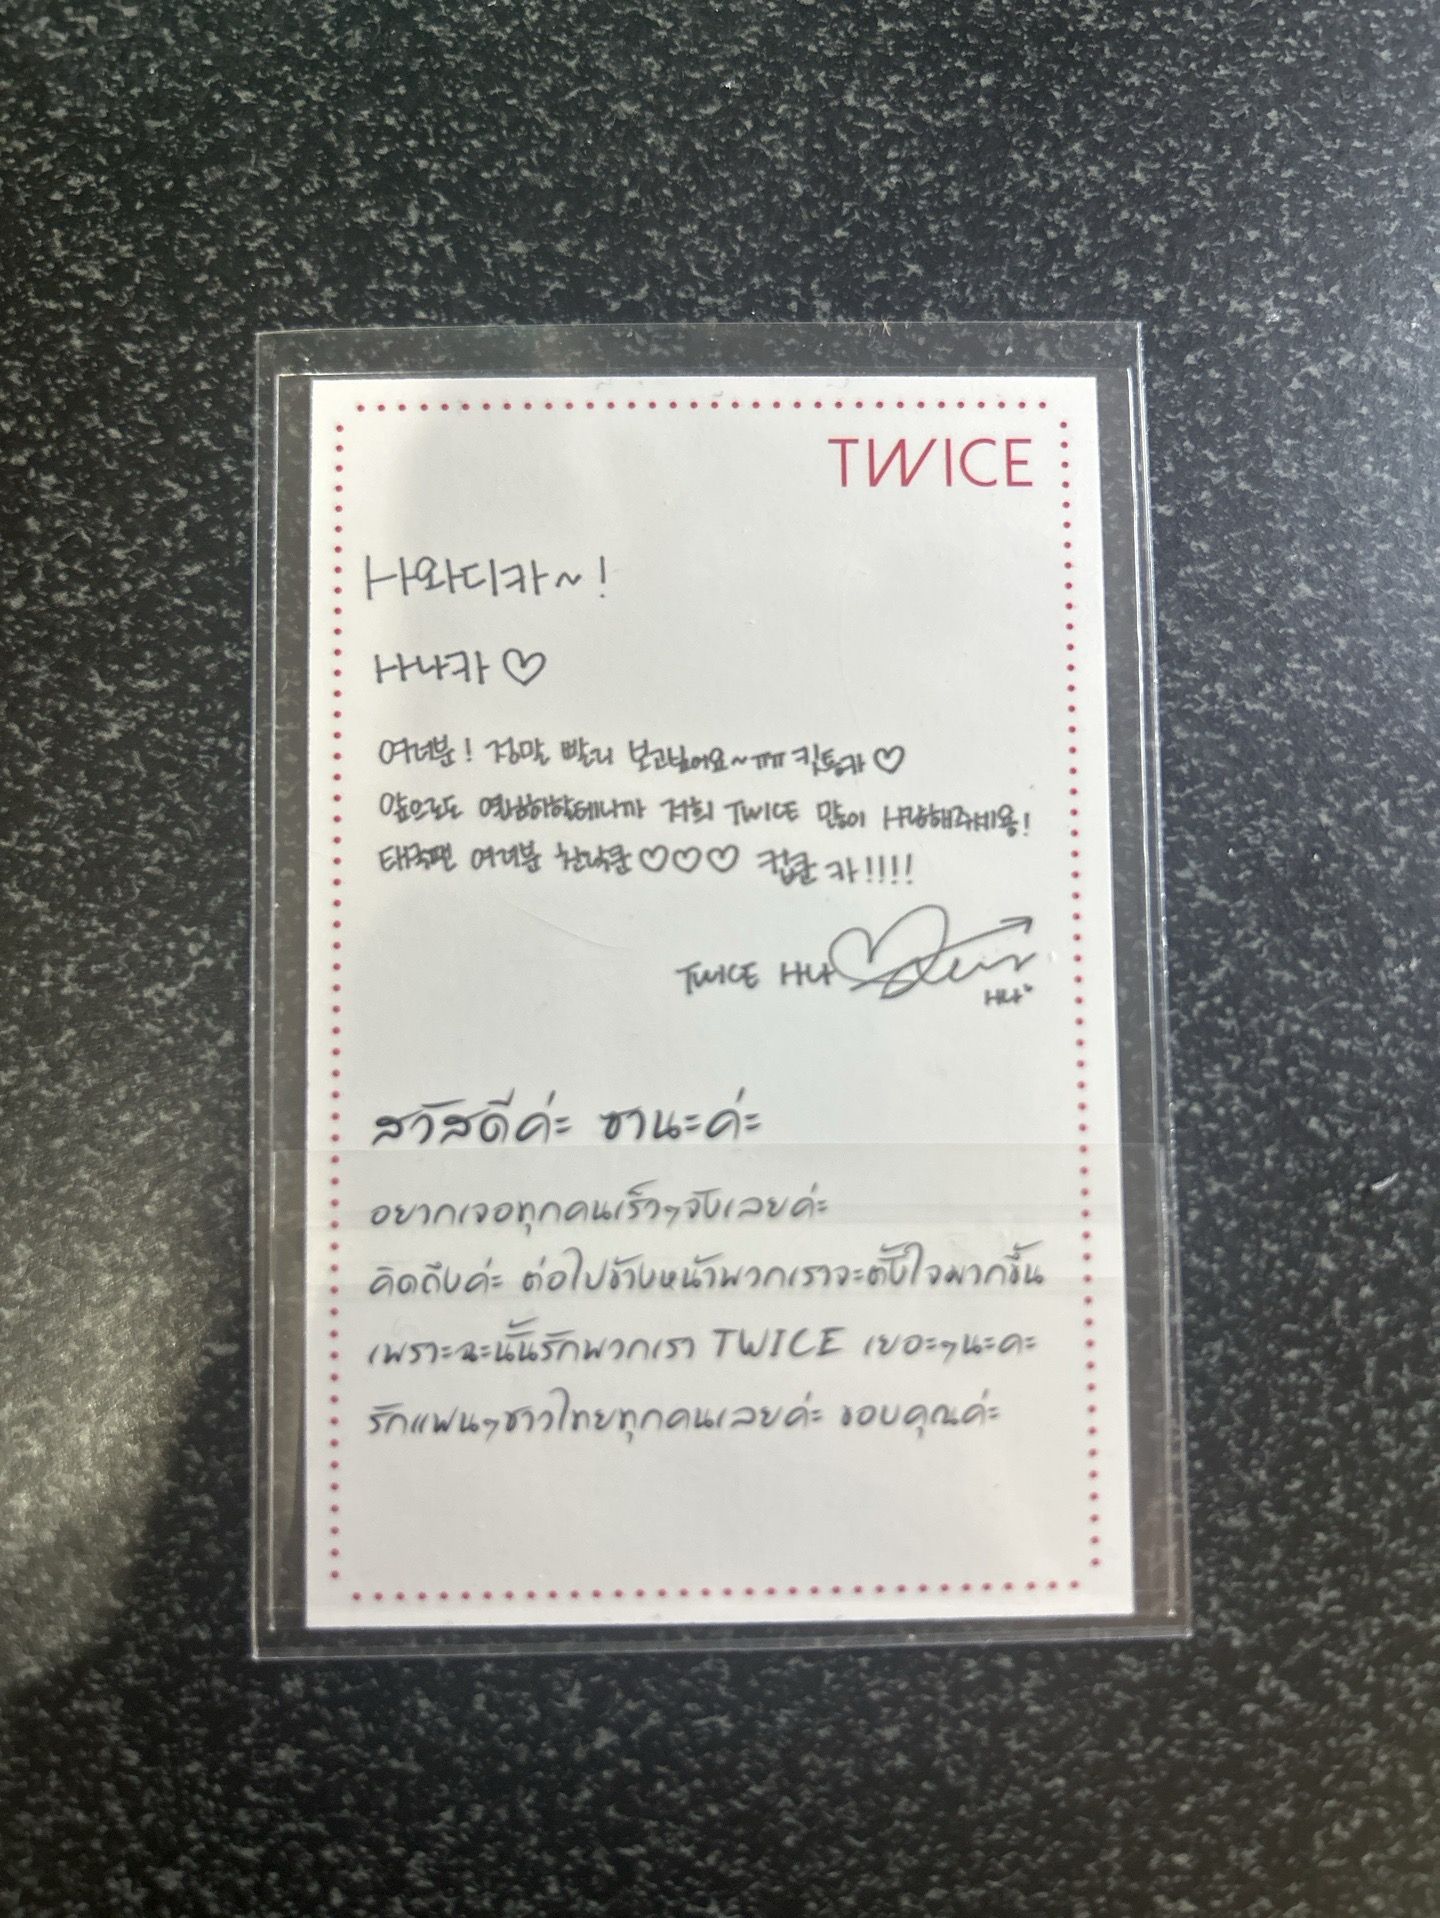 TWICE
사와디카~!
사나카♡
여러분! 정말 빨리 보고싶어요~ㅠㅠ 킷틍카♡
앞으로도 열심히할테니까 저희 TWICE 많이 사랑해주세용!
태국팬 여러분 찬락쿤♡♡♡ 컵쿤 카!!!!
TWICE 사나
사나
สวัสดีค่ะ ซานะค่ะ
อยากเจอทุกคนเร็วๆจังเลยค่ะ
คิดถึงค่ะ ต่อไปข้างหน้าพวกเราจะตั้งใจมากขึ้น
เพราะฉะนั้นรักพวกเรา TWICE เยอะๆนะคะ
รักแฟนๆชาวไทยทุกคนเลยค่ะ ขอบคุณค่ะ